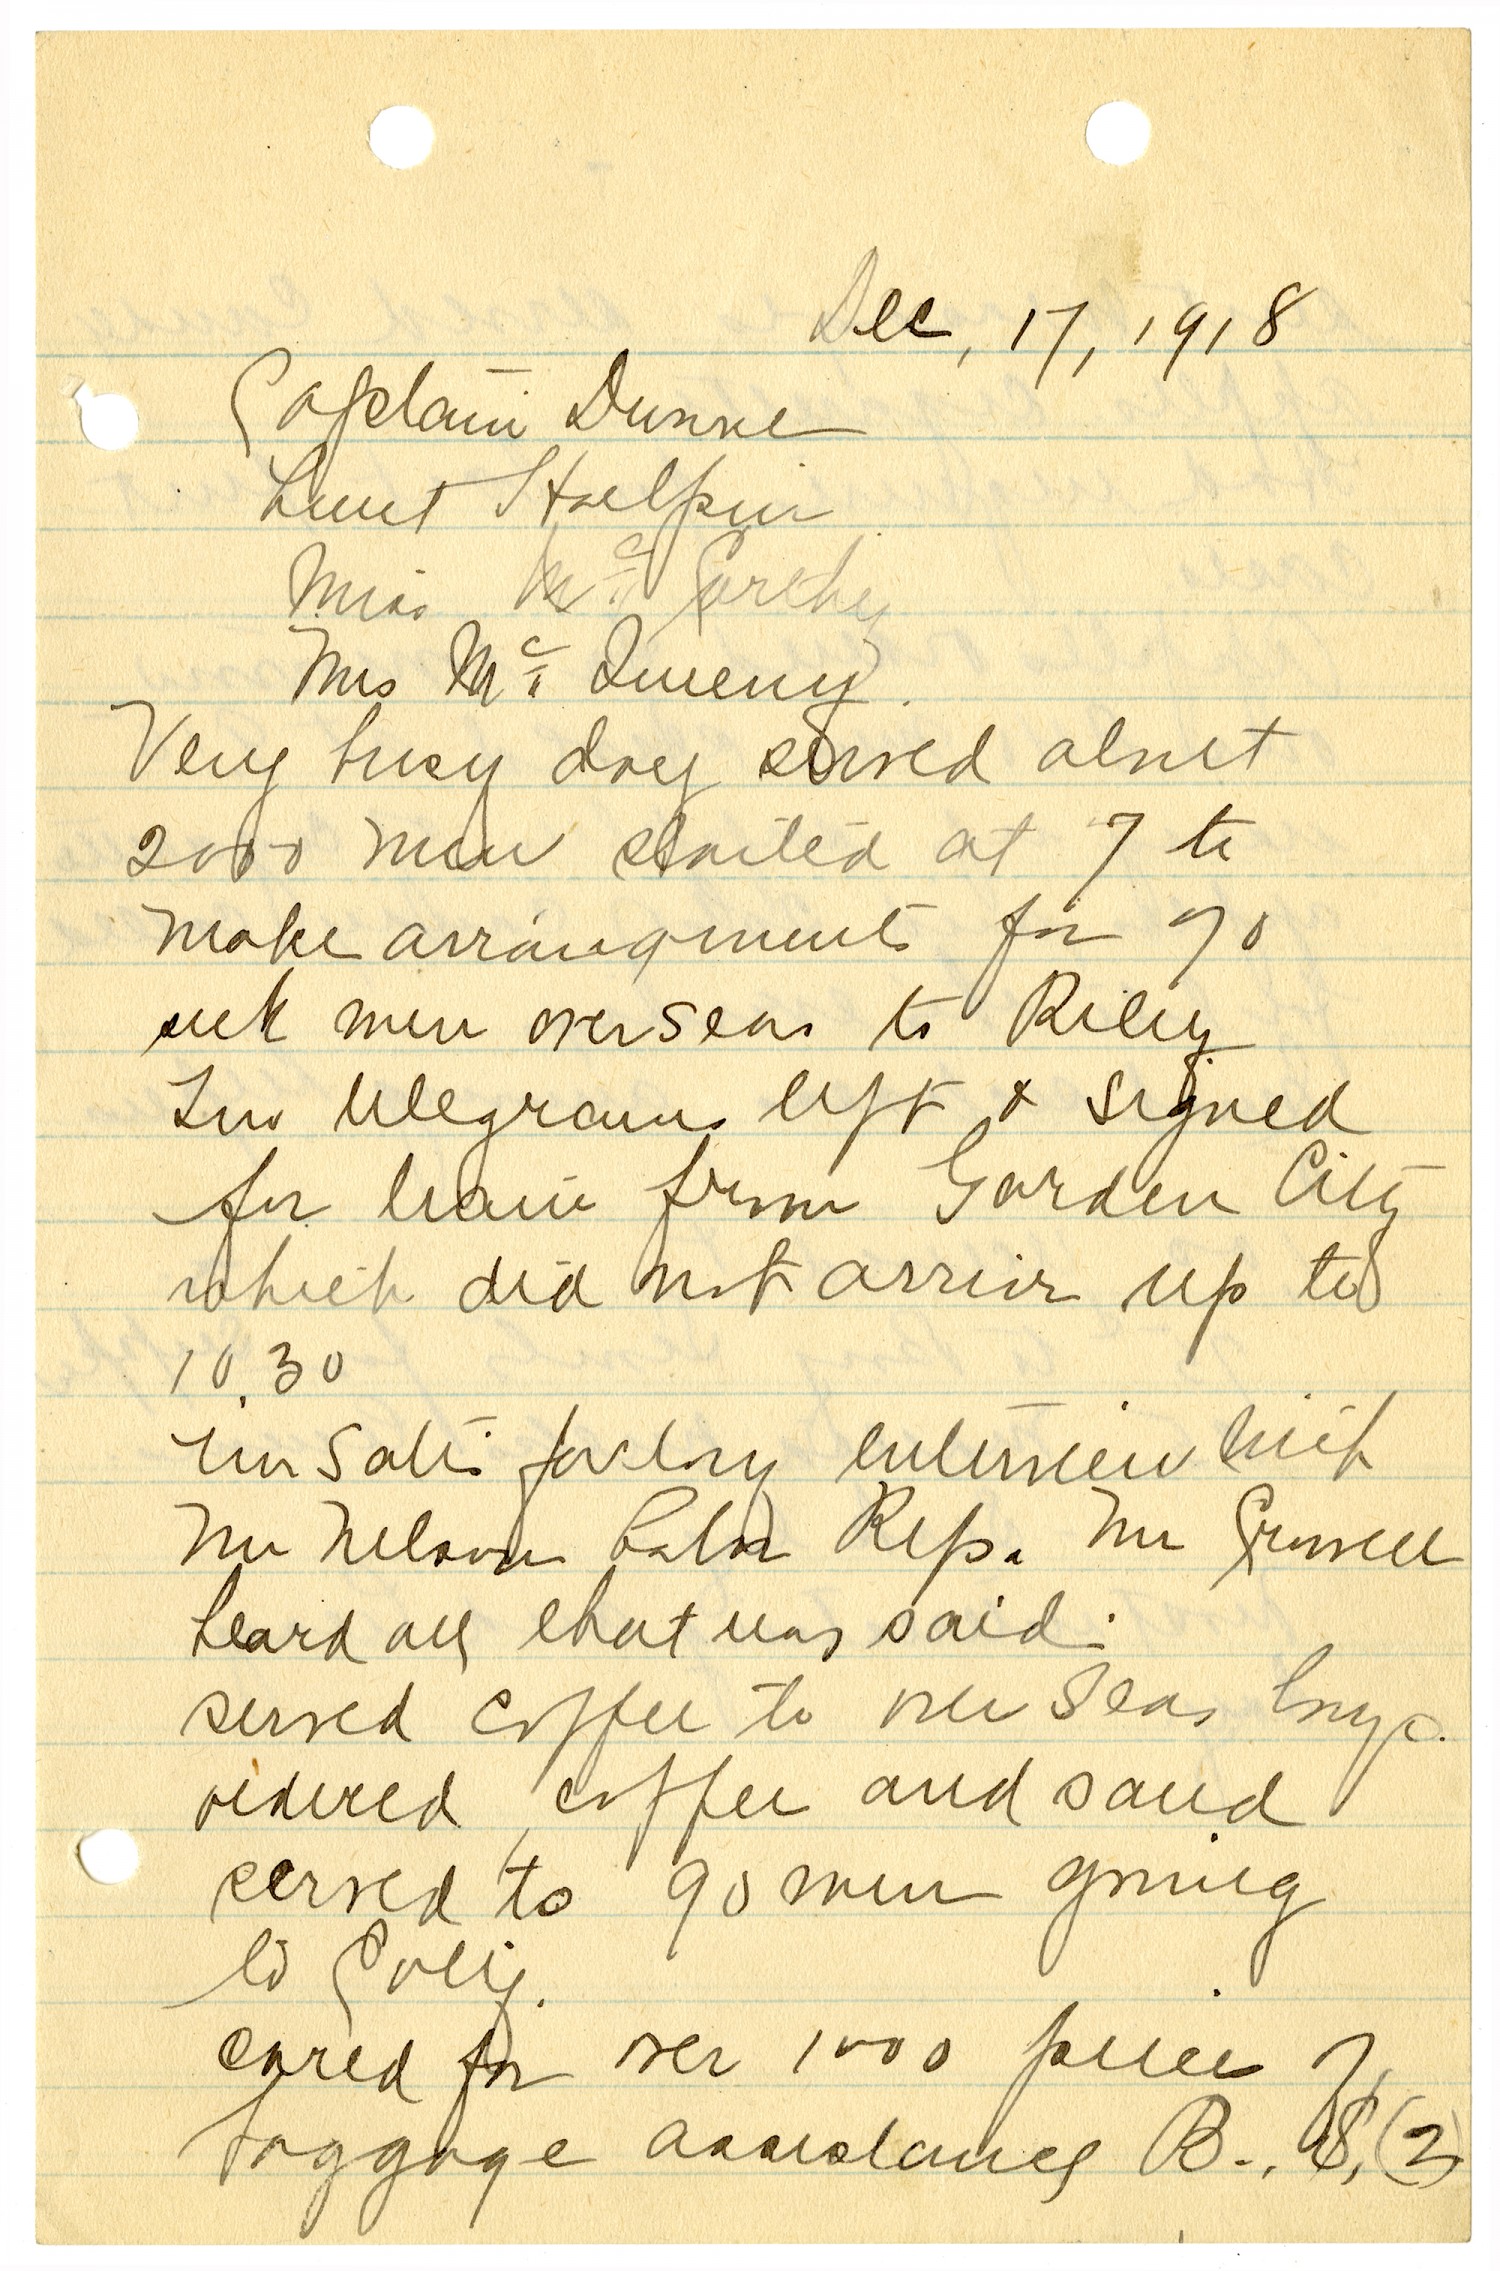 Dec, 17, 1918
Captain Dunne
Lieut Halpin
Miss Mc Carthy
Mrs Mc Sweeny
Very busy day served about
2000 men started at 7 to
make arrangments for 90
sick men overseas to Riley
Two telegrams left & signed
for train from Garden City
which did not arrive up to
10.30
un satisfactory interview with
Mr Nelson Rep. Mr
heard all that was said.
served coffee to over seas boys.
ordered coffee and sand
served to 90 men going
to
cared for over 1000 pieces of
baggage assistance B. S. (2)